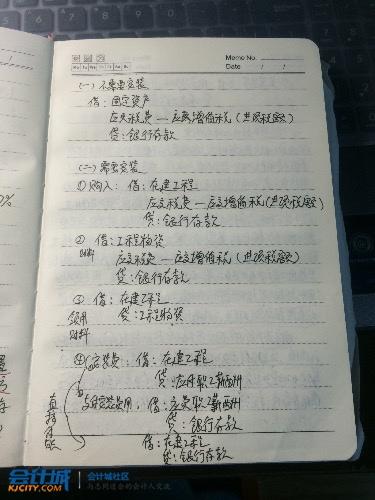 Memo No.
Mo Tu We Th Fr Sa Su
Date / /
(一) 不需要安装
借:固定资产
应交税费—应交增值税(进项税额)
贷:银行存款
(二) 需要安装
①购入:借:在建工程
应交税费—应交增值税(进项税额)
贷:银行存款
② 借:工程物资
材料 应交税费—应交增值税(进项税额)
贷:银行存款
③ 借:在建工程
领用 贷:工程物资
材料
④安装费:借:在建工程
贷:应付职工薪酬
支付安装费用:借:应付职工薪酬
贷:银行存款
直接付款
借:在建工程
贷:银行存款
0%
会计城
KJCITY.COM
会计城社区
与志同道合的会计人交流